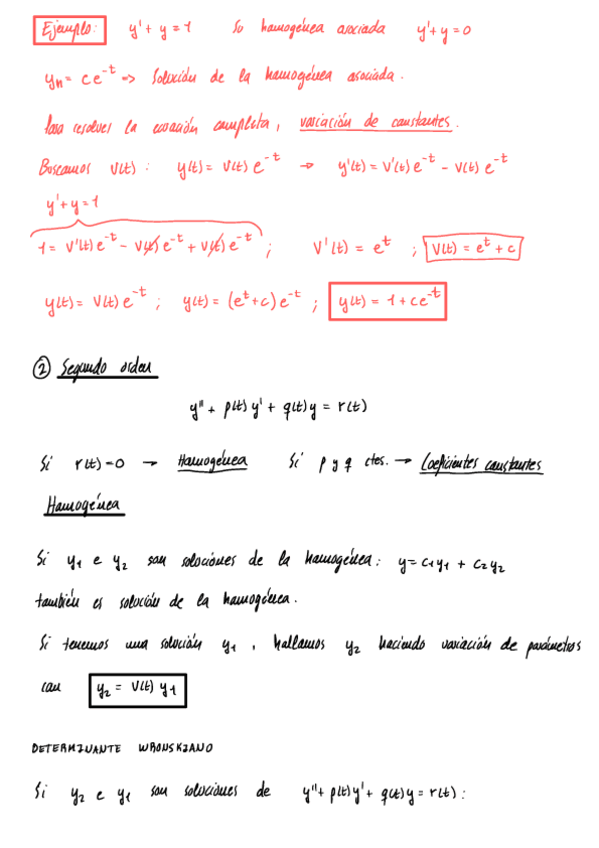 Ejemplo: y' + y = 1 Su homogénea asociada y' + y = 0
yₕ = ce^-t => Solución de la homogénea asociada.
Para resolver la ecuación completa, variación de constantes.
Buscamos V(t): y(t) = V(t) e^-t → y'(t) = V'(t) e^-t - V(t) e^-t
y' + y = 1
1 = V'(t) e^-t - V(t) e^-t + V(t) e^-t ; V'(t) = e^t ; V(t) = e^t + c
y(t) = V(t) e^-t ; y(t) = (e^t + c) e^-t ; y(t) = 1 + ce^-t
② Segundo orden
y'' + p(t) y' + q(t) y = r(t)
Si r(t) = 0 → Homogénea Si p y q ctes. → Coeficientes constantes
Homogénea
Si y₁ e y₂ son soluciones de la homogénea: y = c₁y₁ + c₂y₂
también es solución de la homogénea.
Si tenemos una solución y₁, hallamos y₂ haciendo variación de parámetros
con y₂ = V(t) y₁
DETERMINANTE WRONSKIANO
Si y₂ e y₁ son soluciones de y'' + p(t)y' + q(t)y = r(t):